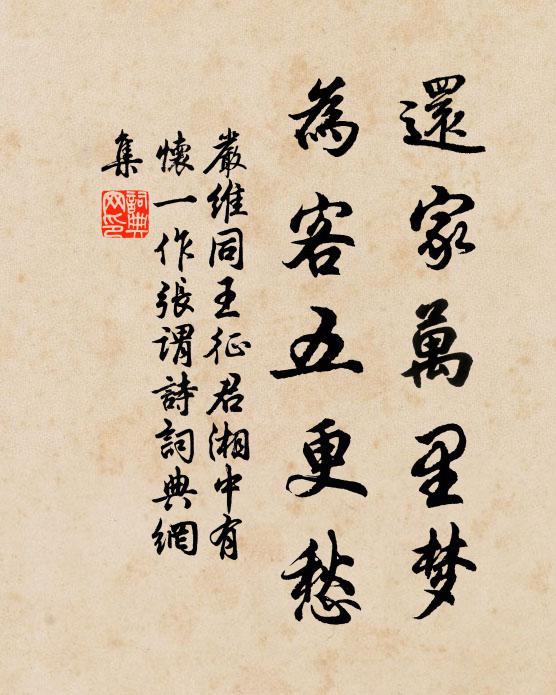 還家萬里梦
為客五更愁
嚴維同王征君湘中有
懷一作張谓詩詞典網
集
詞典
网印